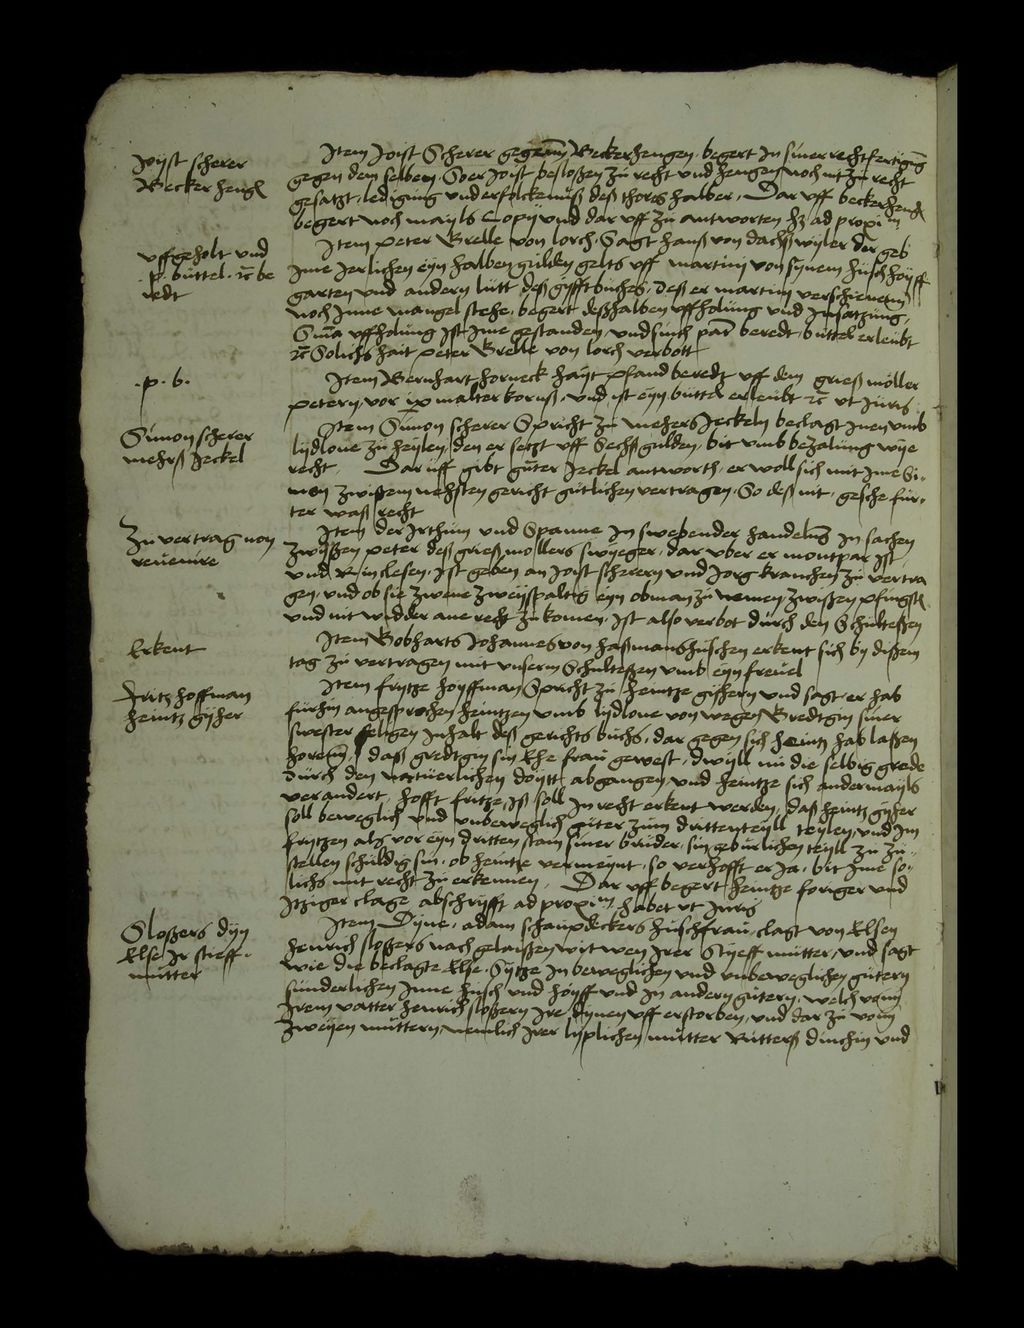 Joist scherer
Becker hengen
Item Joist Scherer gegenn Beckerhengen, begert In siner rechtfertigung
gegen dem selben, So er Joist besloßen zu recht und hengen noch nit zu recht
gesatzt, ledigung und erfolckeniß deß thores halber, Dar uff becker hengen
begert noch mayls Copij und dar uff zu antworten hz ad proxim
uffgeholt und
.p. büttel. rc be
redt
Item Peter Brelle von lorch, Sagt hanß von dachß wyler der geb
Jme Jerlichen eyn halben gulden gelts uff martinj von synem hüsch hoyff
garten und andern lutt deß gifftbüches, Deß er martinj verschienenn
noch Jnne mangel stehe, begert deßhalben uffholung und Insatzung,
Suma uffholung ist Jme gestanden, und sinch part beredt, büttel erleubt
rc Solichs hait peter Brelle von lorch verbott
.p. b.
Item Bernhart horneck hayt pfand beredt uff dem grieß möller
petern, vor ix malter korns, und ist eyn büttel erleubt rc ut Jüris
Simon scherer
mehrß Jeckel
Item Simon scherer Spricht zu mehers Jeckeln beclagt Jnen umb
lydlone zu heylen, den er setzt uff Sechß gulden, bit umb bezalung wije
recht, Dar uff gibt guter Jeckel antworth, er woll sich mit Jme Si-
mon zwissem nehsten gericht gütlichen vertragen, So deß nit, gesche für-
ter waß recht
Zu vertrag non
revenire
Item der Jrthum und Spanne In swebender handelung In sachen
zwyssen peter deß grieß mollers swyeger, dar uber er montpar ist
und Rinclesen, ist geben an Joist scherern und Jorg kranchen zu vertra
gen, und ob sie zwene zweyspaltig eyn obman zu nemen zwissen pfingsten
und nit widder ane recht zu komen, ist also verbot durch den Schulteßen
Erkent
Item Bobharts Johannes von haßmanshuschen erkent sich by dissem
tag zu vertragen mit unserm Schulteßen umb eyn frevel
Fritz hoffman
heintz gyher
Item fritze hoyffman Spricht zu heintze gyhern und sagt er hab
fürhin angesprochen heintzen umb lydlone von wegen Bredtgin siner
swester seligen Inhalt deß gerichts buchs, dar gegen sich heintz hab laßen
horenn, daß gredtgin sin Ehe frau gewest, dwyll nu die selbig grede
durch den naturlichen doytt abgangen, und heintze sich andermayls
verandert, hofft fritze, iß soll In recht erkent werden, daß heintz gyher
soll beweglich und unbeweglich guter zum drittenteyll teylen, und Jm
fritzen als vor eyn dritten stam siner bruder, sin geburlichen teyll zu zu-
stellen schuldig sin, ob heintze vermeynt, so verhofft er Ja, bit Jme so-
lichs mit recht zu erkennen, Dar uff begert heintze foriger und
Jtziger clage abschryfft ad proxim habet ut Juris
Sloßers dyn
Else Jr stieff-
mutter
Item Dyne, adam schaupdeckers huschfrau, clagt von Elsen
henrich sloßers nachgelaißen witwen Jrer Styeff mutter, und sagt
wie die beclagte Else, Sytze In beweglichen und unbeweglichen gutern
sunderlichen Jnne husch und hoyff und In andern gutern, welch vonn
Jrem vatter henrich sloßern Jre dynen uff erstorben, und dar zu vonn
zweyen muttern, nemlich Jrer lyplichen mutter Rutterß dinchin und